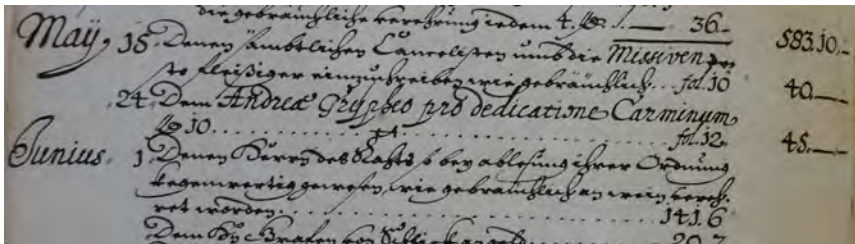 die gebräuchliche verehrung iedem 4. 36.
583.10.
Maÿ, 15. Denen sämbtlichen Cancelisten umb die Missiven
sto fleißiger einzuschreiben wie gebräuchlich... fol. 10 40.
24. Dem Andreæ Gryphio pro dedicatione Carminum
10. fol. 12. 45.
Junius. 1. Denen Herrn des Rahts so bey ablesung ihrer Ordnung
kegenwertig gewesen, wie gebräuchlich an wein vereh-
ret worden. 141.6
Dem Grafen von 20.7